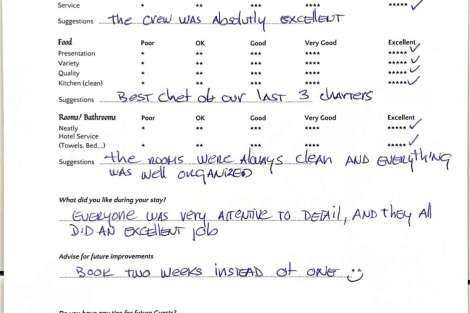 Service * ** *** **** ***** ✓
Suggestions THE CREW WAS ABSOLUTLY EXCELLENT
Food Poor OK Good Very Good Excellent
Presentation * ** *** **** ***** ✓
Variety * ** *** **** ***** ✓
Quality * ** *** **** ***** ✓
Kitchen (clean) * ** *** **** ***** ✓
Suggestions BEST CHEF OF OUR LAST 3 CHARTERS
Rooms/ Bathrooms Poor OK Good Very Good Excellent
Neatly * ** *** **** ***** ✓
Hotel Service
(Towels, Bed...) * ** *** **** ***** ✓
Suggestions THE ROOMS WERE ALWAYS CLEAN AND EVERYTHING
WAS WELL ORGANIZED
What did you like during your stay?
EVERYONE WAS VERY ATTENTIVE TO DETAIL, AND THEY All
DID AN EXCELLENT JOB
Advise for future improvements
BOOK TWO WEEKS INSTEAD OF ONE
Do you have any tips for future Guests?